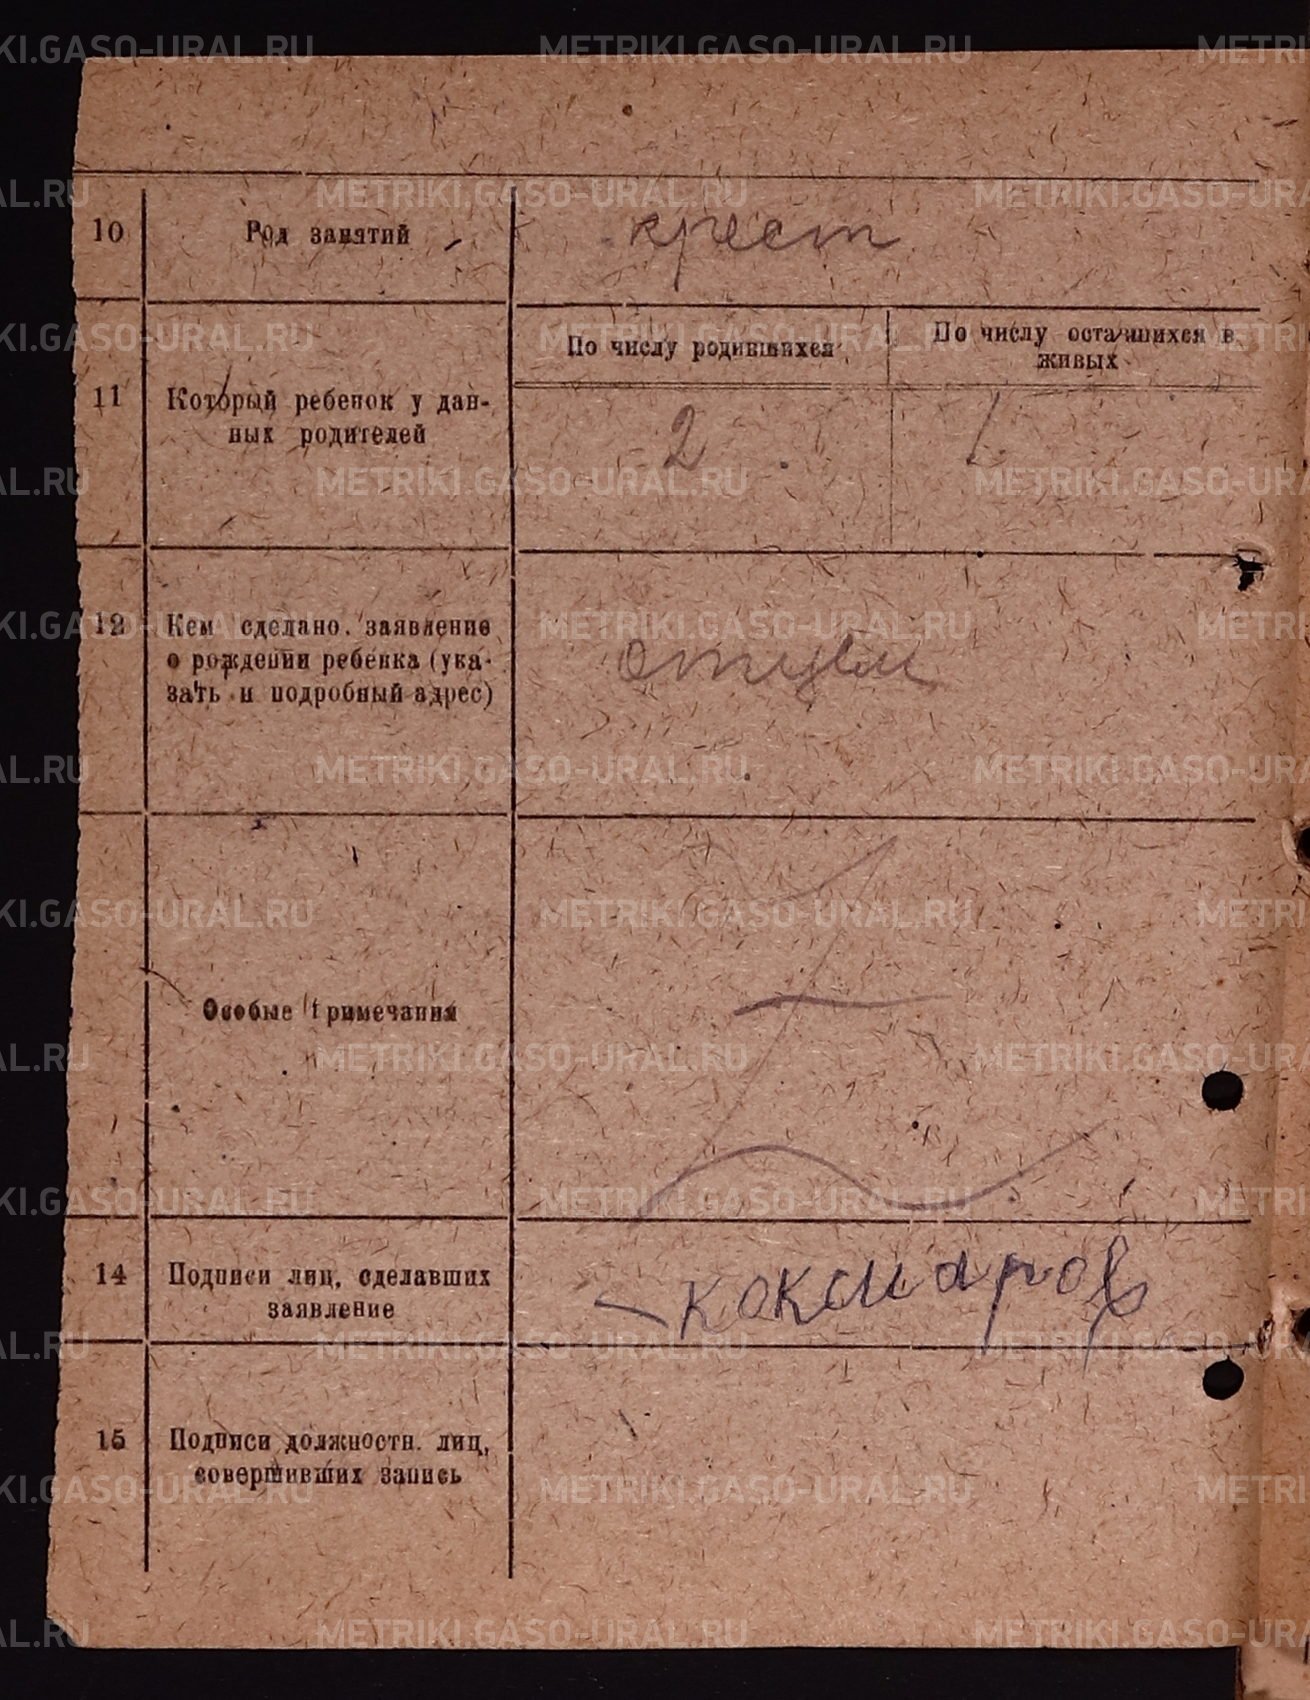 10 Род занятий крест
По числу родившихся По числу оставшихся в
живых
11 Который ребенок у дан-
ных родителей
2 1
12 Кем сделано заявление
о рождении ребенка (ука-
зать и подробный адрес)
отцем
Особые примечания
14 Подписи лиц, сделавших
заявление
Кокшаров
15 Подписи должностн. лиц,
совершивших запись
METRIKI.GASO-URAL.RU